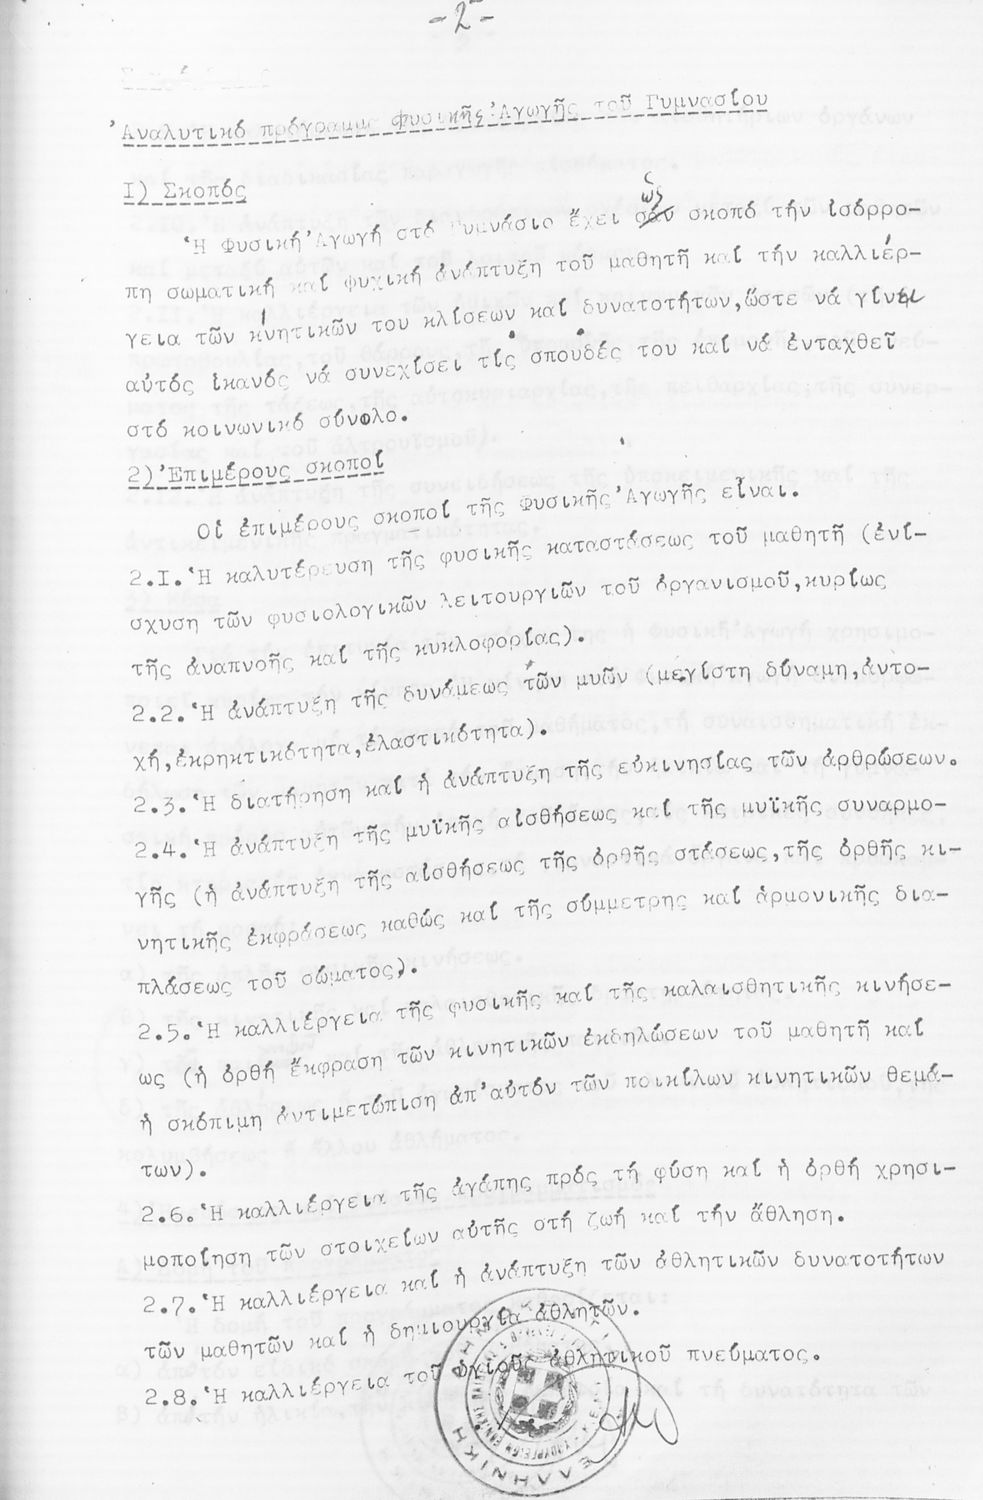 -2-
Ἀναλυτικό πρόγραμμα Φυσικῆς Ἀγωγῆς τοῦ Γυμνασίου
I) Σκοπός
ὡς
Ἡ Φυσική Ἀγωγή στό Γυμνάσιο ἔχει σάν σκοπό τήν ἰσόρρο-
πη σωματική καί ψυχική ἀνάπτυξη τοῦ μαθητῆ καί τήν καλλιέρ-
γεια τῶν κινητικῶν του κλίσεων καί δυνατοτήτων, ὥστε νά γίνει
αὐτός ἱκανός νά συνεχίσει τίς σπουδές του καί νά ἐνταχθεῖ
στό κοινωνικό σύνολο.
2) Ἐπιμέρους σκοποί
Οἱ ἐπιμέρους σκοποί τῆς Φυσικῆς Ἀγωγῆς εἶναι.
2.I. Ἡ καλυτέρευση τῆς φυσικῆς καταστάσεως τοῦ μαθητῆ (ἐνί-
σχυση τῶν φυσιολογικῶν λειτουργιῶν τοῦ ὀργανισμοῦ, κυρίως
τῆς ἀναπνοῆς καί τῆς κυκλοφορίας).
2.2. Ἡ ἀνάπτυξη τῆς δυνάμεως τῶν μυῶν (μεγίστη δύναμη, ἀντο-
χή, ἐκρηκτικότητα, ἐλαστικότητα).
2.3. Ἡ διατήρηση καί ἡ ἀνάπτυξη τῆς εὐκινησίας τῶν ἀρθρώσεων.
2.4. Ἡ ἀνάπτυξη τῆς μυϊκῆς αἰσθήσεως καί τῆς μυϊκῆς συναρμο-
γῆς (ἡ ἀνάπτυξη τῆς αἰσθήσεως τῆς ὀρθῆς στάσεως, τῆς ὀρθῆς κι-
νητικῆς ἐκφράσεως καθώς καί τῆς σύμμετρης καί ἁρμονικῆς δια-
πλάσεως τοῦ σώματος).
2.5. Ἡ καλλιέργεια τῆς φυσικῆς καί τῆς καλαισθητικῆς κινήσε-
ως (ἡ ὀρθή ἔκφραση τῶν κινητικῶν ἐκδηλώσεων τοῦ μαθητῆ καί
ἡ σκόπιμη ἀντιμετώπιση ἀπ' αὐτόν τῶν ποικίλων κινητικῶν θεμά-
των).
2.6. Ἡ καλλιέργεια τῆς ἀγάπης πρός τή φύση καί ἡ ὀρθή χρησι-
μοποίηση τῶν στοιχείων αὐτῆς στή ζωή καί τήν ἄθληση.
2.7. Ἡ καλλιέργεια καί ἡ ἀνάπτυξη τῶν ἀθλητικῶν δυνατοτήτων
τῶν μαθητῶν καί ἡ δημιουργία ἀθλητῶν.
2.8. Ἡ καλλιέργεια τοῦ ὑγιοῦς ἀθλητικοῦ πνεύματος.
ΕΛΛΗΝΙΚΗ